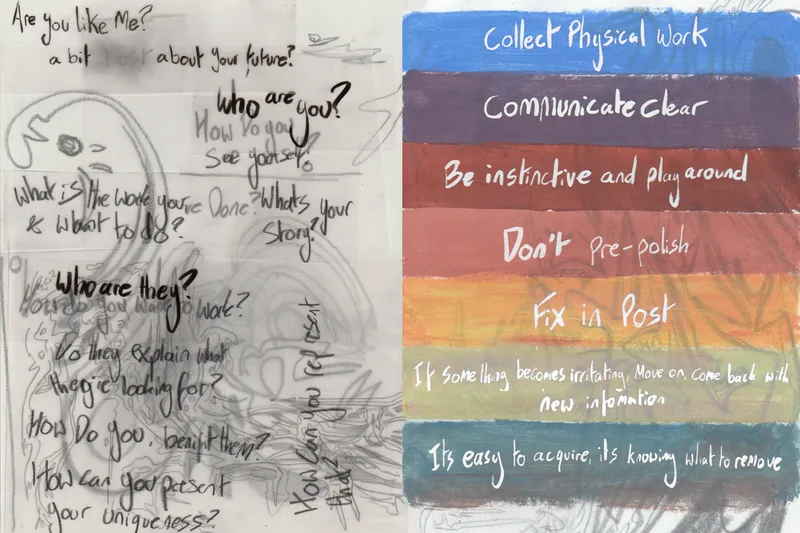 Are you like Me?
a bit lost about your future?
Who are you?
How Do you
see yourself?
What is the work you've Done?
& want to do?
Whats your
Story?
Who are they?
How do you want to work?
Do they explain what
they're looking for?
How Do You, benefit them?
How can you present
your uniqueness?
How can you represent
that?
Collect Physical Work
Communicate clear
Be instinctive and play around
Don't pre-polish
Fix in Post
If something becomes irritating, Move on, come back with
new infomation
Its easy to acquire, its knowing what to remove